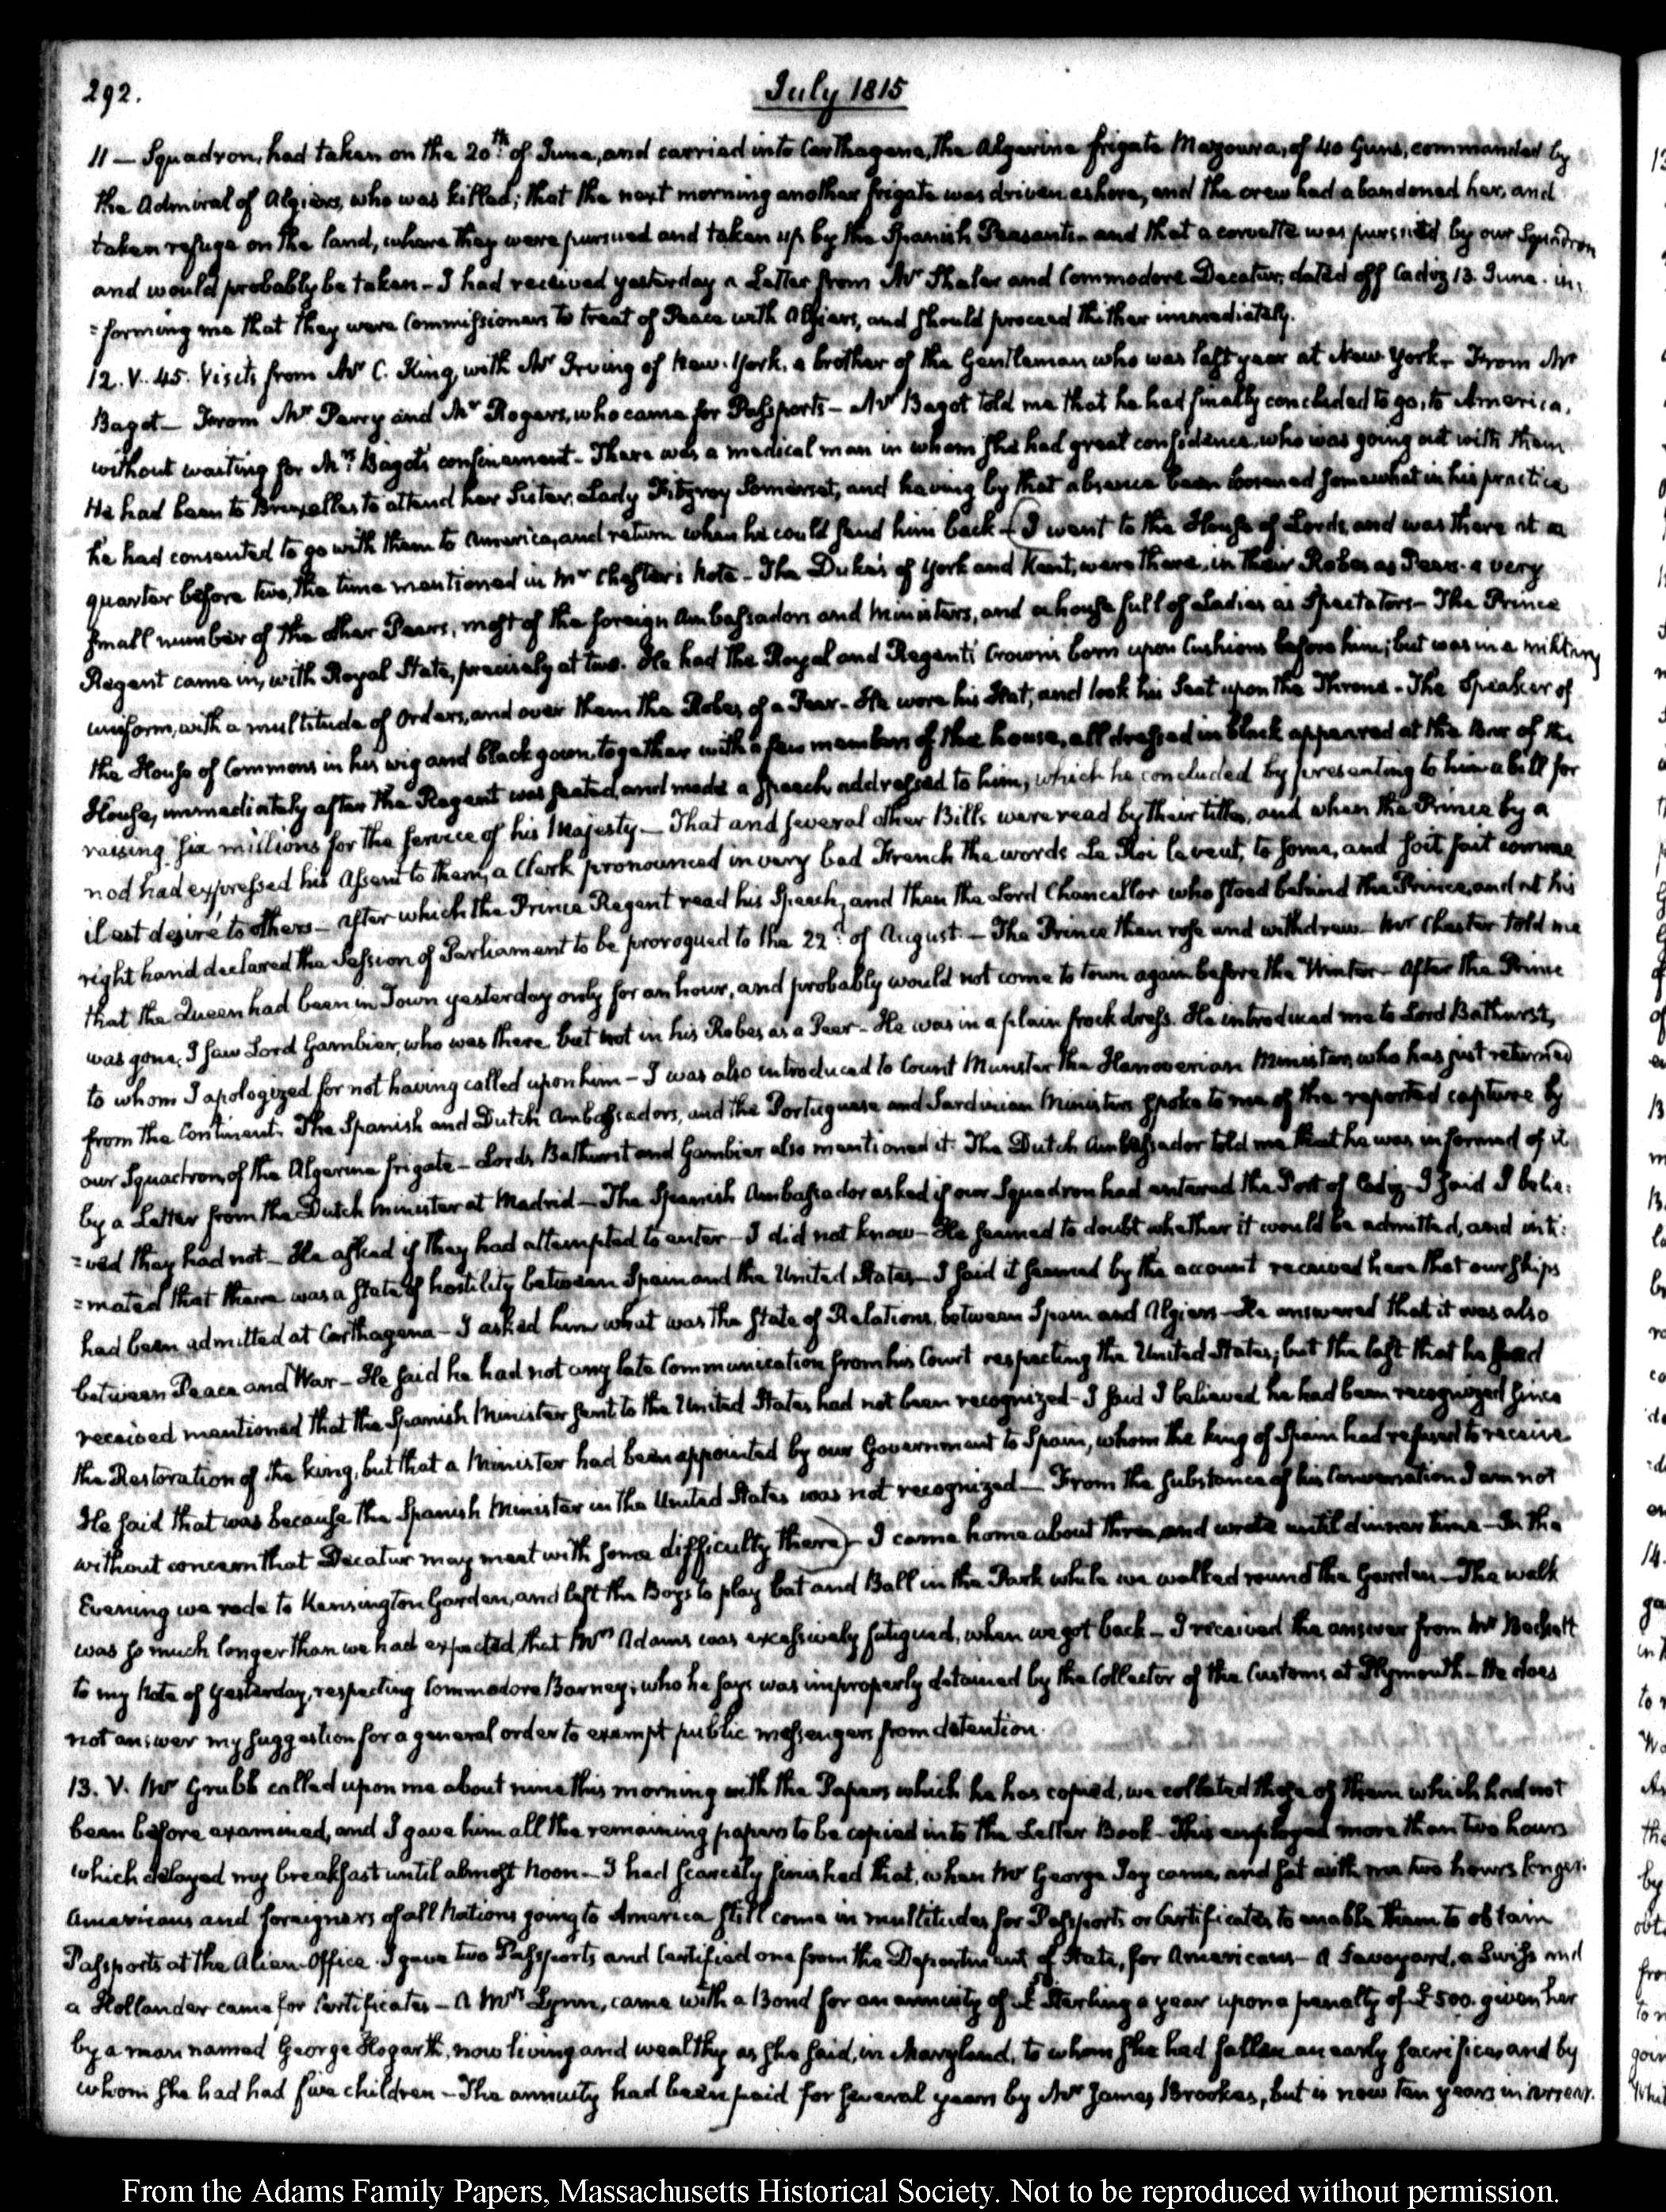 292.
July 1815
11 — Squadron, had taken on the 20th. of June, and carried into Carthagena, the Algerine frigate Mazoura, of 40 Guns, commanded by
the Admiral of Algiers, who was killed; that the next morning another frigate was driven ashore, and the crew had abandoned her, and
taken refuge on the land, where they were pursued and taken up by the Spanish Peasants — and that a corvette was pursued by our Squadron
and would probably be taken — I had received yesterday a Letter from Mr Shaler and Commodore Decatur, dated off Cadiz 13. June. in,
=forming me that they were Commissioners to treat of Peace with Algiers, and should proceed thither immediately.
12. V. 45. Visits from Mr C. King, with Mr Irving of New-York, a brother of the Gentleman who was last year at New York — From Mr
Bagot — From Mr Perry and Mr Rogers, who came for Passports — Mr Bagot told me that he had finally concluded to go, to America,
without waiting for Mrs Bagot's confinement — There was a medical man in whom she had great confidence, who was going out with them
He had been to Bruxelles to attend her Sister, Lady Fitzroy Somerset, and having by that absence been loosened somewhat in his practice
he had consented to go with them to America, and return when he could send him back — (I went to the House of Lords, and was there at a
quarter before two, the time mentioned in Mr Chester's Note — The Duke's of York and Kent, were there, in their Robes as Peers. a very
small number of the other Peers, most of the foreign Ambassadors and Ministers, and a house full of Ladies as Spectators — The Prince
Regent came in, with Royal State, precisely at two. He had the Royal and Regent's Crowns born upon Cushions before him; but was in a military
uniform, with a multitude of Orders, and over them the Robes of a Peer — He wore his Hat, and took his Seat upon the Throne — The Speaker of
the House of Commons in his wig and black gown, together with a few members of the house, all dressed in black appeared at the Bar of the
House, immediately after the Regent was seated, and made a speech addressed to him, which he concluded by presenting to him a bill for
raising six millions for the service of his Majesty — That and several other Bills were read by their titles, and when the Prince by a
nod had expressed his Assent to them, a Clerk pronounced in very bad French the words Le Roi le veut, to some, and soit fait comme
il est desiré to others — After which the Prince Regent read his Speech, and then the Lord Chancellor who stood behind the Prince, and at his
right hand declared the Session of Parliament to be prorogued to the 22d. of August. — The Prince then rose and withdrew — Mr Chester told me
that the Queen had been in Town yesterday only for an hour, and probably would not come to town again before the Winter — After the Prince
was gone, I saw Lord Gambier, who was there but not in his Robes as a Peer — He was in a plain frock dress. He introduced me to Lord Bathurst,
to whom I apologized for not having called upon him — I was also introduced to Count Munster the Hanoverian Minister, who has just returned
from the Continent. The Spanish and Dutch Ambassadors, and the Portuguese and Sardinian Ministers spoke to me of the reported capture by
our Squadron, of the Algerine frigate — Lords Bathurst and Gambier also mentioned it. The Dutch Ambassador told me that he was informed of it
by a Letter from the Dutch Minister at Madrid — The Spanish Ambassador asked if our Squadron had entered the Port of Cadiz — I said I belie:
=ved they had not — He asked if they had attempted to enter — I did not know — He seemed to doubt whether it would be admitted, and inti:
=mated that there was a state of hostility between Spain and the United States — I said it seemed by the account received here that our ships
had been admitted at Carthagena — I asked him what was the state of Relations, between Spain and Algiers — He answered that it was also
between Peace and War — He said he had not any late Communication from his Court respecting the United States; but the last that he had
received mentioned that the Spanish Minister sent to the United States had not been recognized — I said I believed he had been recognized since
the Restoration of the king, but that a Minister had been appointed by our Government to Spain, whom the king of Spain had refused to receive
He said that was because the Spanish Minister in the United States was not recognized — From the substance of his Conversation I am not
without concern that Decatur may meet with some difficulty there) — I came home about three, and wrote until dinner time — In the
Evening we rode to Kensington Garden, and left the Boys to play bat and Ball in the Park while we walked round the Garden — The walk
was so much longer than we had expected, that Mrs Adams was excessively fatigued, when we got back — I received the answer from Mr Beckett
to my Note of yesterday, respecting Commodore Barney; who he says was improperly detained by the Collector of the Customs at Plymouth — He does
not answer my suggestion for a general order to exempt public messengers from detention.
13. V. Mr Grubb called upon me about nine this morning with the Papers which he has copied, we collated those of them which had not
been before examined, and I gave him all the remaining papers to be copied into the Letter Book — This employed more than two hours
which delayed my breakfast until almost Noon — I had scarcely finished that, when Mr George Joy came, and sat with me two hours longer.
Americans and foreigners of all Nations going to America still come in multitudes for Passports or Certificates to enable them to obtain
Passports at the Alien-Office. I gave two Passports and Certified one from the Department of State, for Americans — A Savoyard, a Swiss and
a Hollander came for Certificates — A Mrs Lynn, came with a Bond for an annuity of £ Sterling a year upon a penalty of £500. given her
by a man named George Hogarth, now living and wealthy as she said, in Maryland, to whom she had fallen an early sacrifice, and by
whom she had had five children — The annuity had been paid for several years by Mr James Brookes, but is now ten years in arrear.
From the Adams Family Papers, Massachusetts Historical Society. Not to be reproduced without permission.